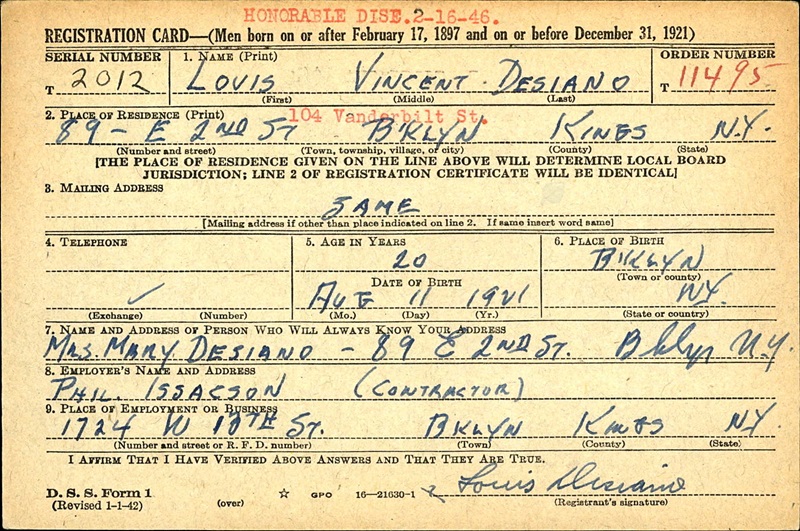 HONORABLE DISE.2-16-46.
REGISTRATION CARD—(Men born on or after February 17, 1897 and on or before December 31, 1921)
SERIAL NUMBER 1. NAME (Print) ORDER NUMBER
T 2012 LOUIS VINCENT DESIANO T 11495
(First) (Middle) (Last)
2. PLACE OF RESIDENCE (Print) 104 Vanderbilt St.
89 - E 2ND ST B'KLYN KINGS N.Y.
(Number and street) (Town, township, village, or city) (County) (State)
[THE PLACE OF RESIDENCE GIVEN ON THE LINE ABOVE WILL DETERMINE LOCAL BOARD
JURISDICTION; LINE 2 OF REGISTRATION CERTIFICATE WILL BE IDENTICAL]
3. MAILING ADDRESS
SAME
[Mailing address if other than place indicated on line 2. If same insert word same]
4. TELEPHONE 5. AGE IN YEARS 6. PLACE OF BIRTH
20 B'KLYN
DATE OF BIRTH (Town or county)
AUG 11 1921 N.Y.
(Exchange) (Number) (Mo.) (Day) (Yr.) (State or country)
7. NAME AND ADDRESS OF PERSON WHO WILL ALWAYS KNOW YOUR ADDRESS
MRS. MARY DESIANO - 89 E 2ND ST. Bklyn N.Y.
8. EMPLOYER'S NAME AND ADDRESS
PHIL. ISSACSON (CONTRACTOR)
9. PLACE OF EMPLOYMENT OR BUSINESS
1724 W ST. BKLYN KINGS N.Y.
(Number and street or R. F. D. number) (Town) (County) (State)
I AFFIRM THAT I HAVE VERIFIED ABOVE ANSWERS AND THAT THEY ARE TRUE.
Louis Desiano
D. S. S. Form 1 (over) ☆ GPO 16—21630-1 (Registrant's signature)
(Revised 1-1-42)